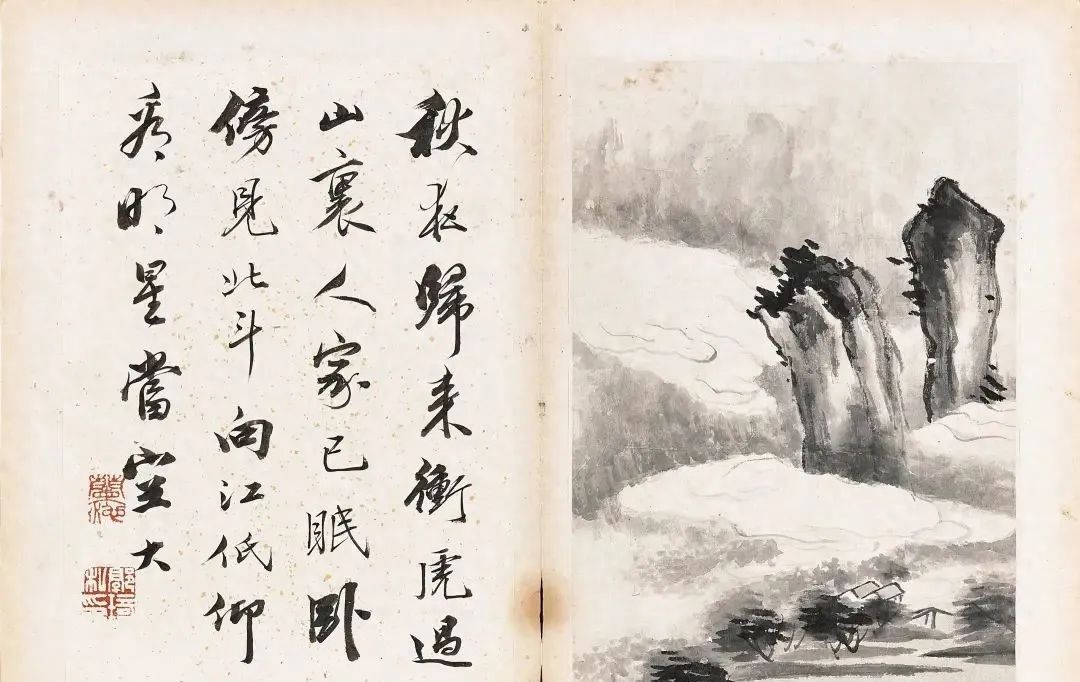 秋夜歸来衝虎過
山裏人家已眠臥
傍見北斗向江低仰
看明星當空大